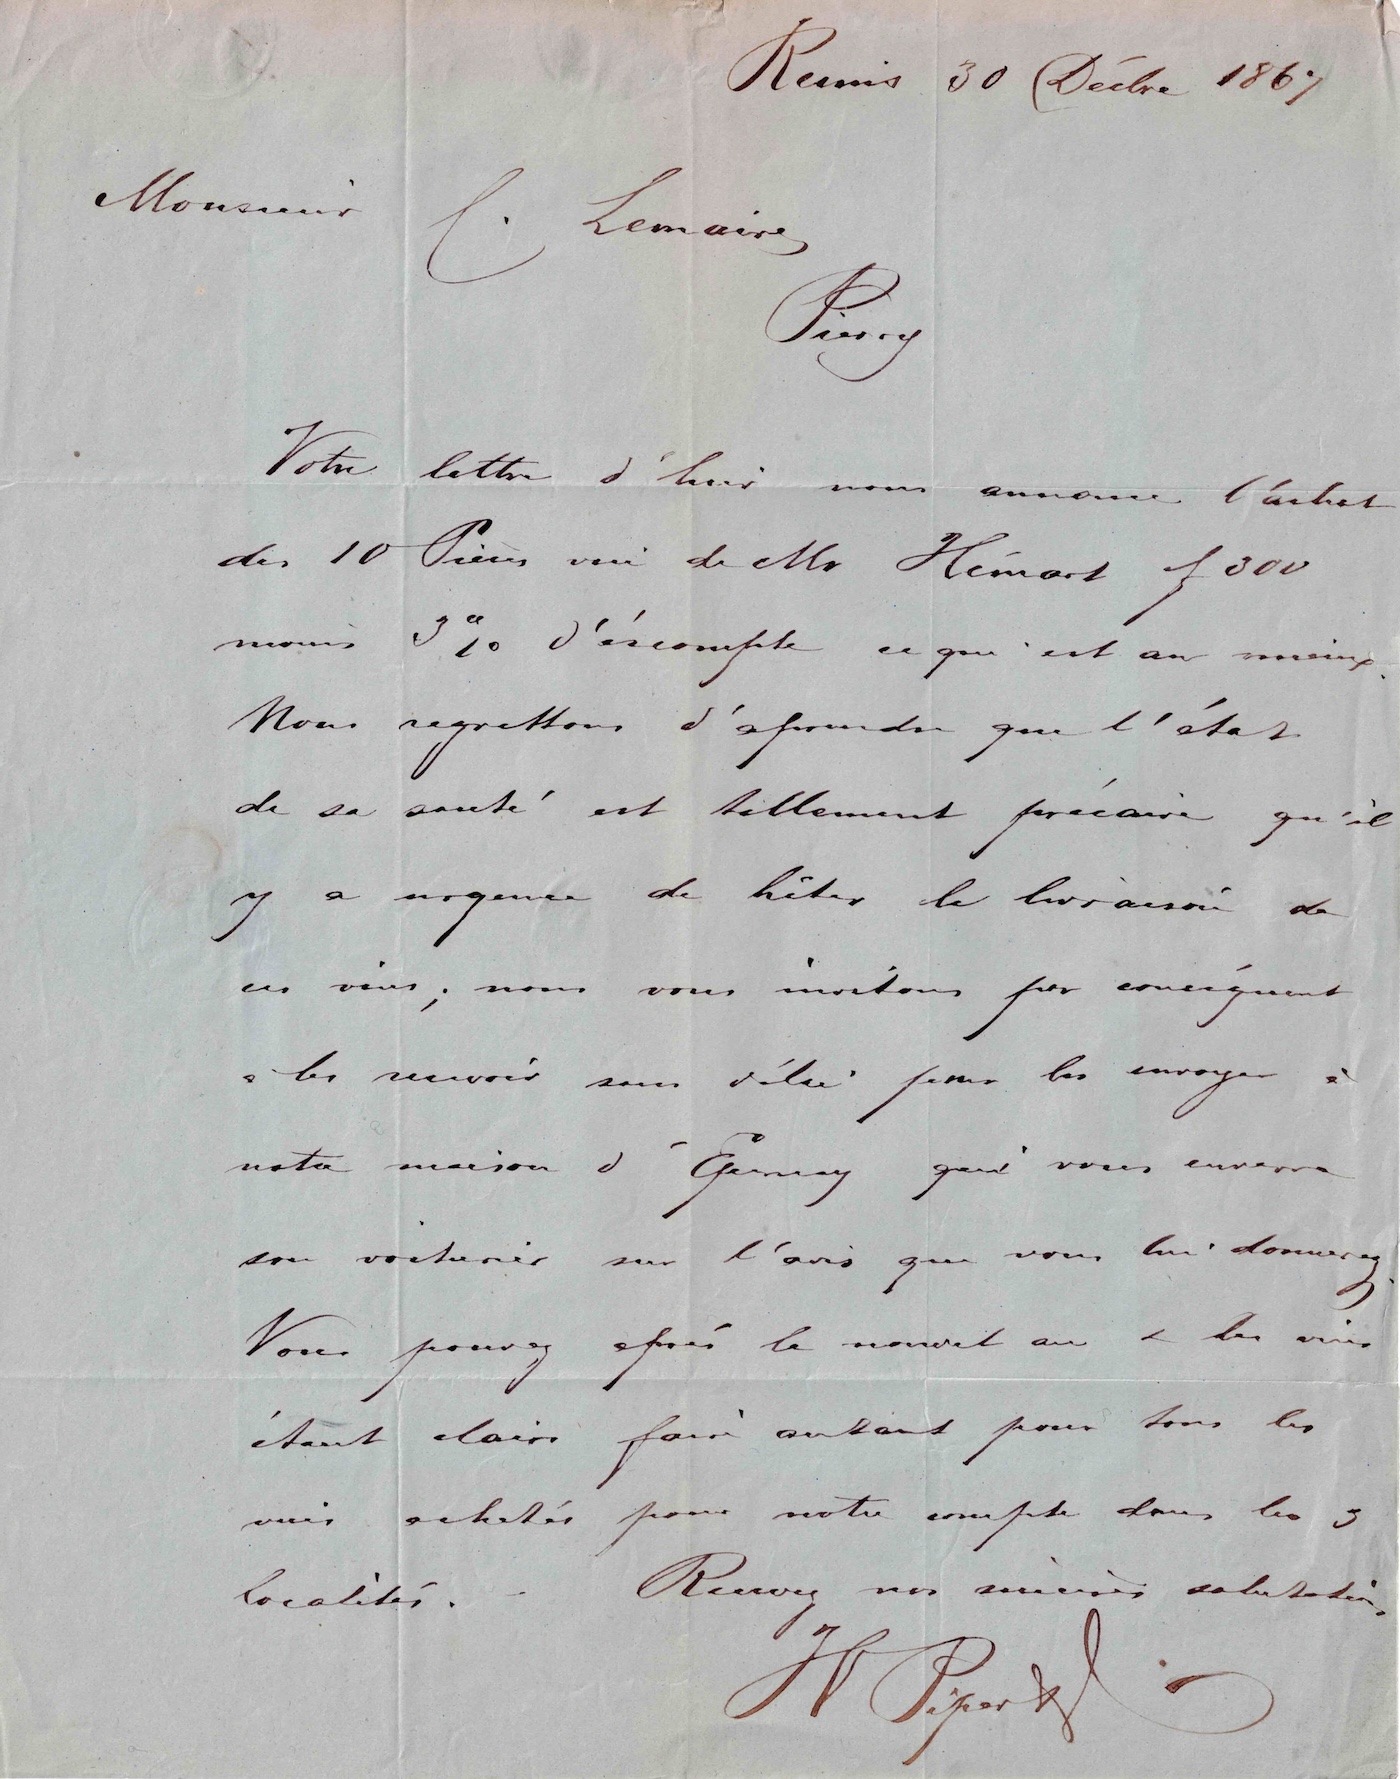 Reims 30 Décbre 1867
Monsieur C. Lemaire
Pierry
Votre lettre d'hier nous annonce l'achat
des 10 Pièces vin de Mr Hémart f 300
moins 3 % d'éscompte ce qui est au mieux.
Nous regrettons d'aprendre que l'état
de sa santé est tellement précaire qu'il
y a urgence de hâter la livraison de
ces vins; nous vous invitons par conséquent
a les recevoir sans délai pour les envoyer à
notre maison d'Epernay qui vous enverra
son voiturier sur l'avis que vous lui donnerez.
Vous pouvez aprés le nouvel an & les vins
étant clairs faire autant pour tous les
vins achetés pour notre compte dans les 3
localités. - Recevez nos sincères salutations
H Piper &